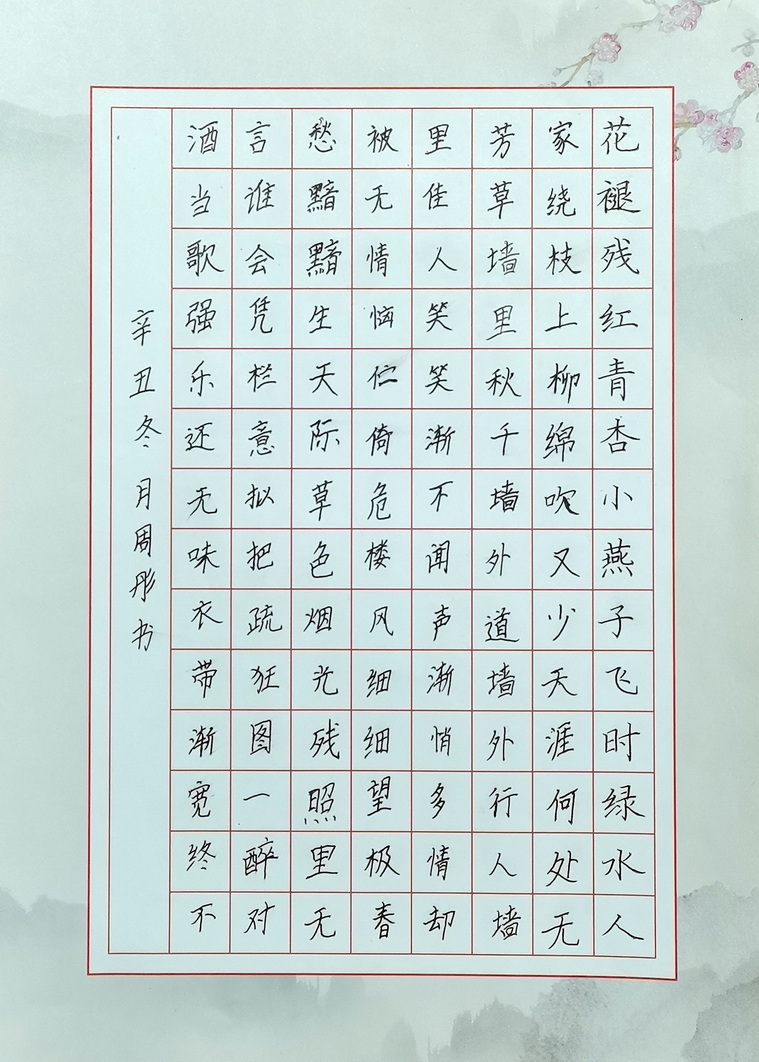 花褪残红青杏小燕子飞时绿水人
家绕枝上柳绵吹又少天涯何处无
芳草墙里秋千墙外道墙外行人墙
里佳人笑笑渐不闻声渐悄多情却
被无情恼伫倚危楼风细细望极春
愁黯黯生天际草色烟光残照里无
言谁会凭栏意拟把疏狂图一醉对
酒当歌强乐还无味衣带渐宽终不
辛丑冬月周彤书